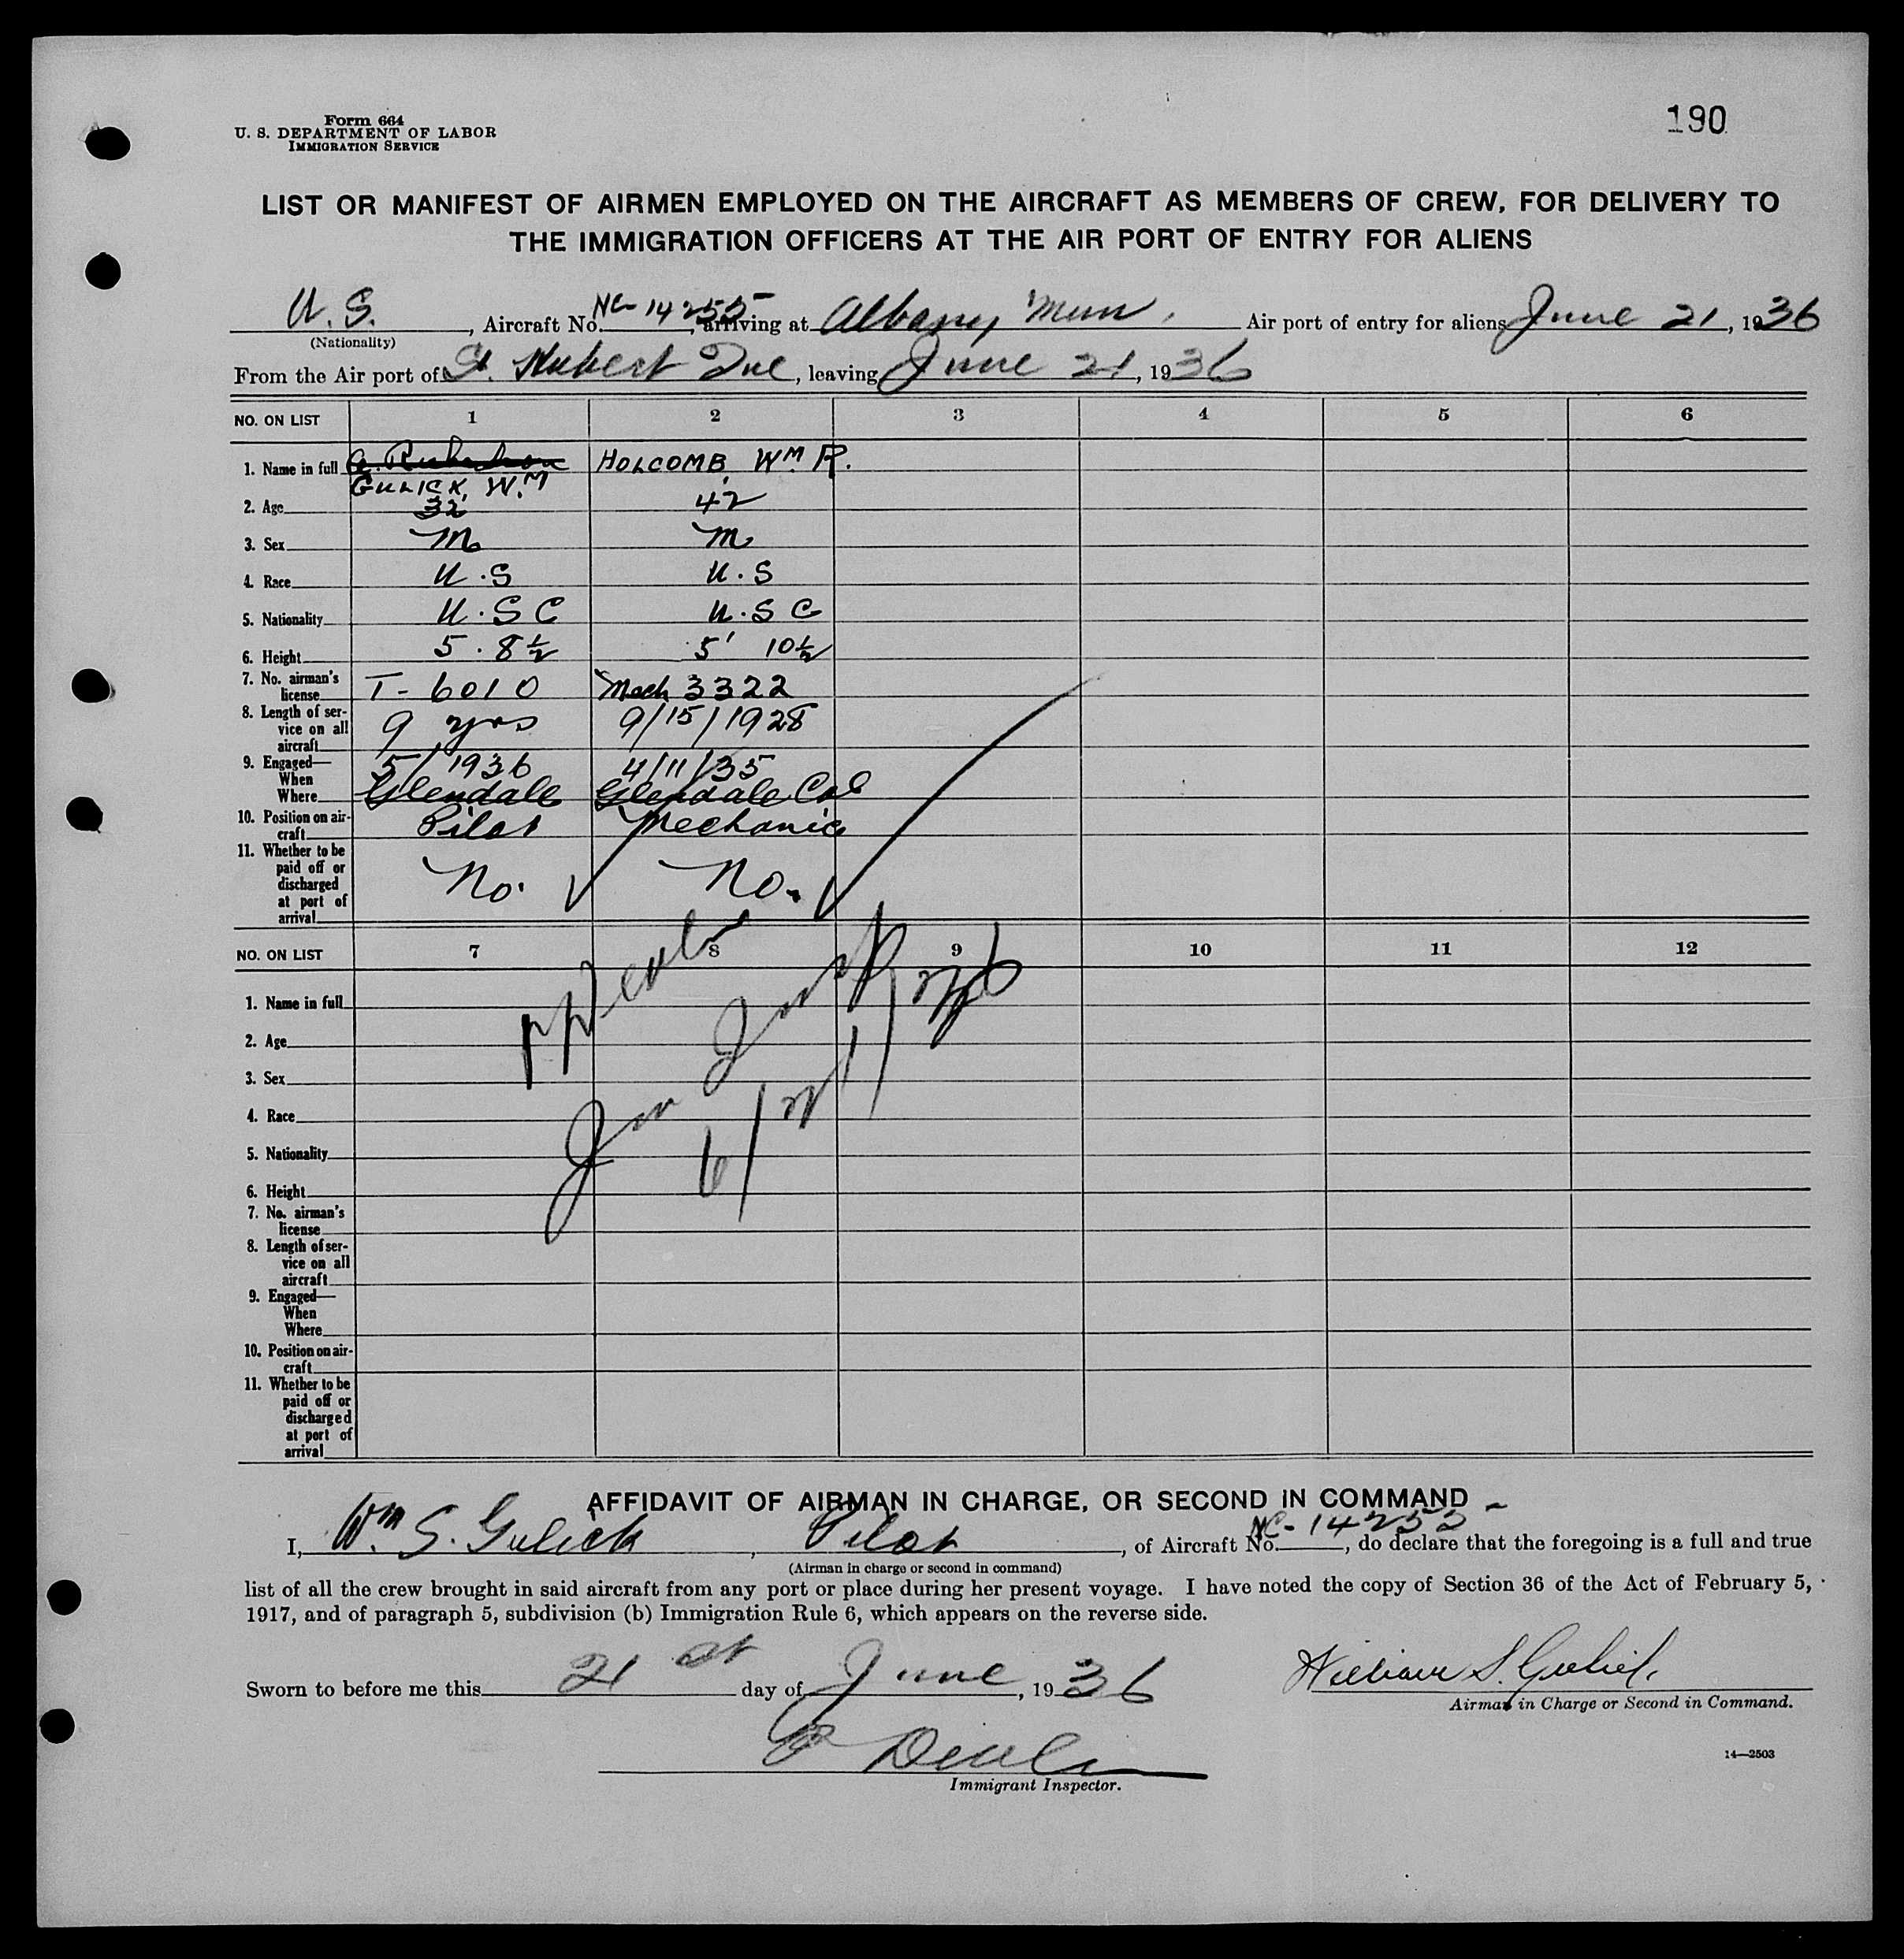 190
Form 664
U. S. DEPARTMENT OF LABOR
IMMIGRATION SERVICE
LIST OR MANIFEST OF AIRMEN EMPLOYED ON THE AIRCRAFT AS MEMBERS OF CREW, FOR DELIVERY TO
THE IMMIGRATION OFFICERS AT THE AIR PORT OF ENTRY FOR ALIENS
U. S., Aircraft No. NC-14255, arriving at Albany Mun, Air port of entry for aliens June 21, 1936
(Nationality)
From the Air port of St. Hubert Que, leaving June 21, 1936
NO. ON LIST 1 2 3 4 5 6
1. Name in full HOLCOMB, WM R.
GULICK, WM
2. Age 32 42
3. Sex M M
4. Race U.S U.S
5. Nationality U.S C U.S C
6. Height 5.8½ 5' 10½
7. No. airman's
license T-6010 Mech 3322
8. Length of ser-
vice on all 9 yrs 9/15/1928
aircraft
9. Engaged— 5/1936 4/11/35
When
Where Glendale Glendale Cal
10. Position on air-
craft Pilot Mechanic
11. Whether to be
paid off or
discharged No. No.
at port of
arrival
NO. ON LIST 7 8 9 10 11 12
1. Name in full
2. Age
3. Sex
4. Race
5. Nationality
6. Height
7. No. airman's
license
8. Length of ser-
vice on all
aircraft
9. Engaged—
When
Where
10. Position on air-
craft
11. Whether to be
paid off or
discharged
at port of
arrival
AFFIDAVIT OF AIRMAN IN CHARGE, OR SECOND IN COMMAND
I, Wm S. Gulick, Pilot, of Aircraft No. NC-14255, do declare that the foregoing is a full and true
(Airman in charge or second in command)
list of all the crew brought in said aircraft from any port or place during her present voyage. I have noted the copy of Section 36 of the Act of February 5,
1917, and of paragraph 5, subdivision (b) Immigration Rule 6, which appears on the reverse side.
Sworn to before me this 21 st day of June, 1936
William S. Gulick
Airman in Charge or Second in Command.
Immigrant Inspector.
14—2503